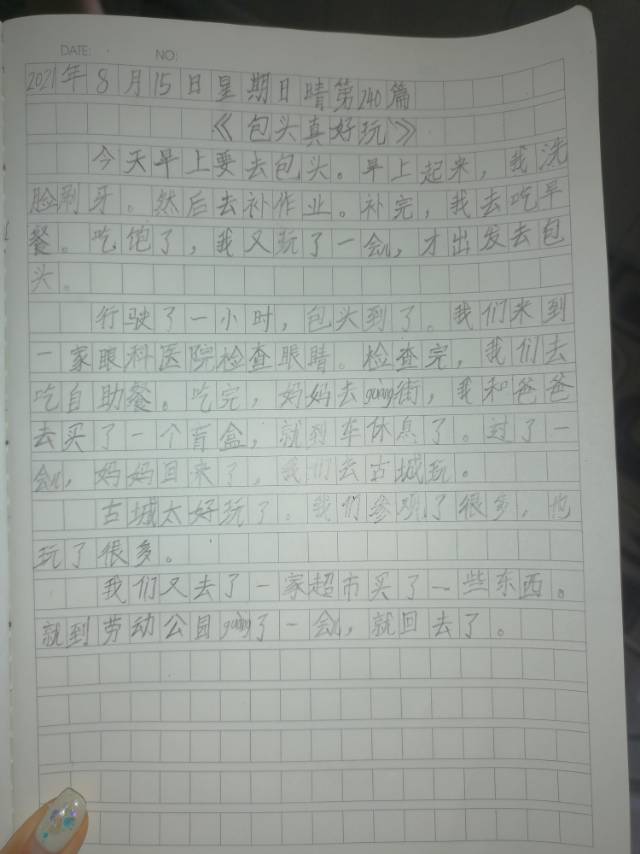 DATE: NO:
2021年8月15日星期日晴第240篇
《包头真好玩》
今天早上要去包头。早上起来，我洗
脸刷牙。然后去补作业。补完，我去吃早
餐。吃饱了，我又玩了一会儿，才出发去包
头。
行驶了一小时，包头到了。我们来到
一家眼科医院检查眼睛。检查完，我们去
吃自助餐。吃完，妈妈去guàng街，我和爸爸
去买了一个盲盒，就到车休息了。过了一
会儿，妈妈回来了，我们去古城玩。
古城太好玩了。我们参观了很多，也
玩了很多。
我们又去了一家超市买了一些东西。
就到劳动公园guàng了一会儿，就回去了。